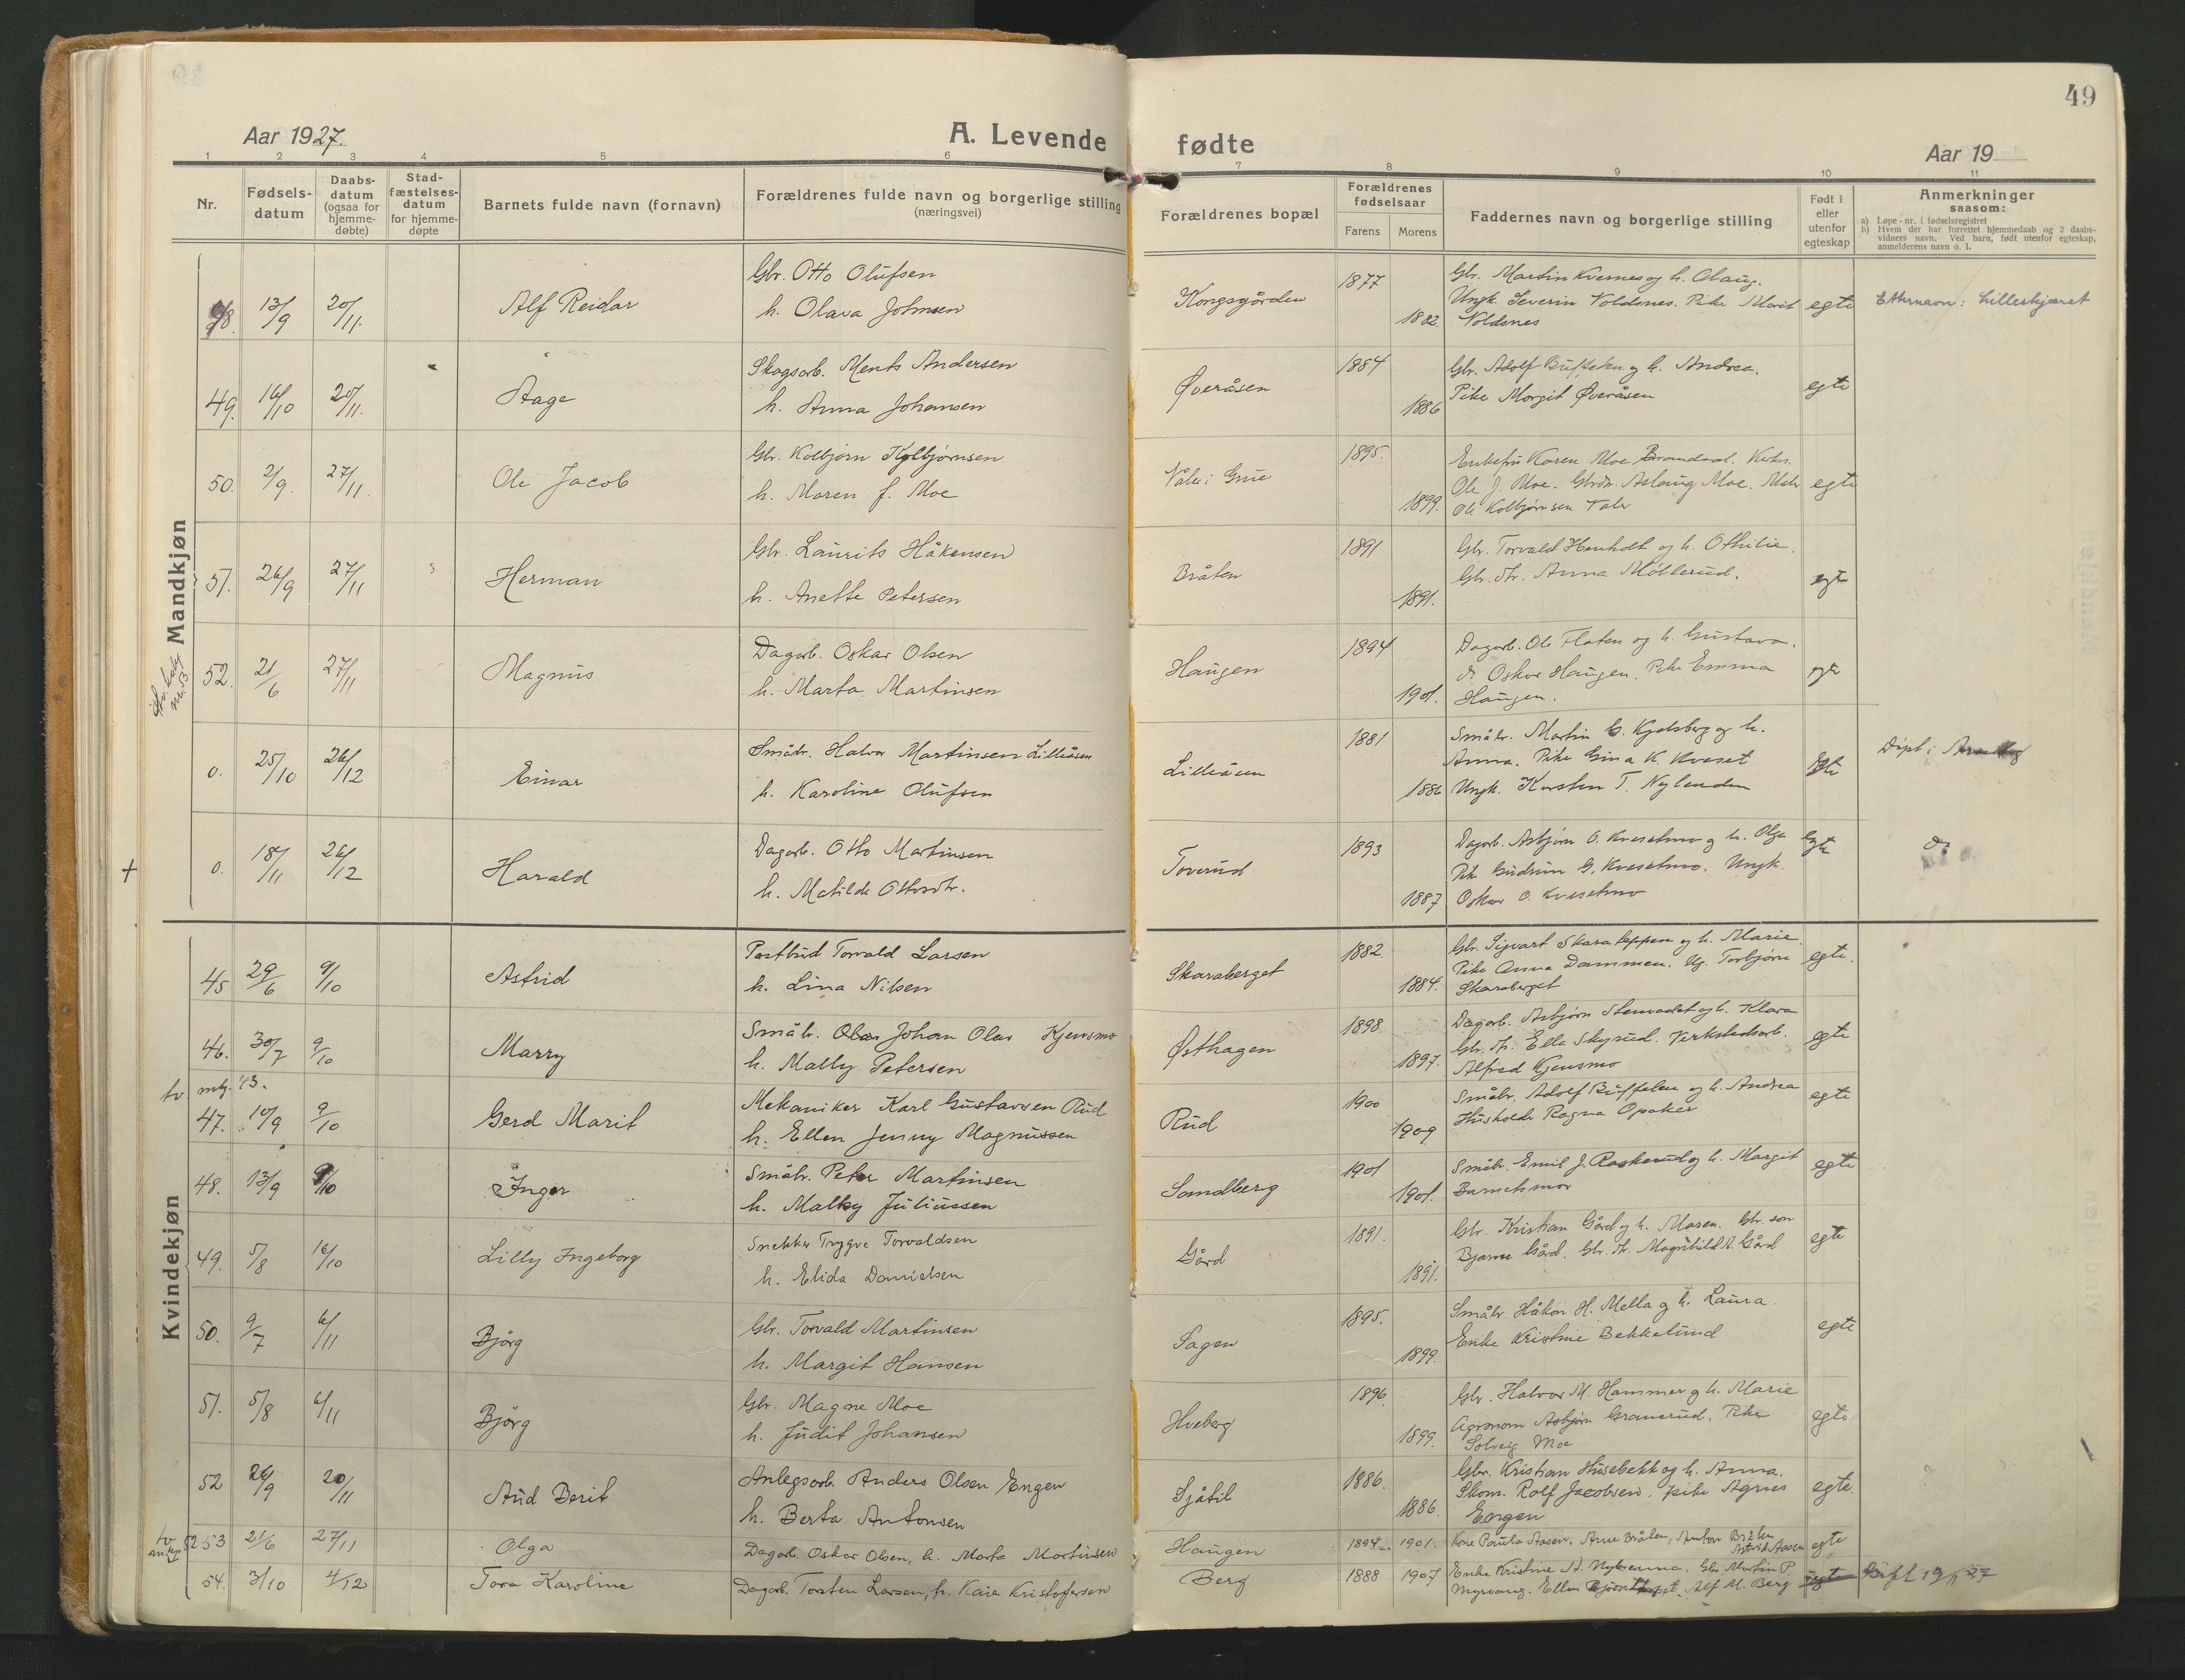 49
Aar 1927.
A. Levende fødte
Aar 19
1 2 3 4 5 6 7 8 9 10 11
Nr.
Fødsels-
datum
Daabs-
datum
(ogsaa for
hjemme-
døbte)
Stad-
fæstelses-
datum
for hjemme-
døpte
Barnets fulde navn (fornavn)
Forældrenes fulde navn og borgerlige stilling
(næringsvei)
Forældrenes bopæl
Forældrenes
fødselsaar
Farens Morens
Faddernes navn og borgerlige stilling
Født i
eller
utenfor
egteskap
Anmerkninger
saasom:
a) Løpe-nr. i fødselsregistret
b) Hvem der bar forrettet hjemmedaab og 2 daabs-
vidners navn. Ved barn, født utenfor egteskap,
anmelderens navn o. l.
Mandkjøn
48. 13/9 20/11. Alf Reidar
Gbr. Otto Olufsen
h. Olava Johnsen
Kongsgården 1877 1882.
Gbr. Martin Kvernes og h. Olaug.
Ungk. Severin Voldsnes. Pike Marit
Voldsnes
egte
Etternavn: Lilleskjæret
49. 16/10 20/11. Aage
Skogsarb. Ments Andersen
h. Anna Johansen
Øveråsen 1884 1886
Gbr. Adolf Buffelen og h. Andrea.
Pike Margit Øveråsen
egte
50. 2/9. 27/11. Ole Jacob
Gbr. Kolbjørn Kolbjørnsen
h. Maren J. Moe
Våler i Grue 1895. 1899.
Enkefru Karen Moe Brandval.
Ole J. Moe. Gbrdr. Aslaug Moe.
Ole Kolbjørnsen Valer
egte
51. 26/9 27/11 Herman
Gbr. Laurits Håkensen
h. Anette Petersen
Bråten 1891 1891.
Gbr. Torvald Henholt og h. Othilie.
Gbr. dtr. Anna Møllerud.
egte
52. 21/6 27/11 Magnus
Dagarb. Oskar Olsen
h. Marta Martinsen
Haugen 1894 1901.
Dagarb. Ole Flaten og h. Gustava.
do Oskar Haugen. Pike Emma
Haugen.
egte
0. 25/10 26/12 Einar
Småbr. Halvor Martinsen Lilleåsen
h. Karoline Olufsen
Lilleåsen 1881 1886
Småbr. Martin G. Kjelsberg og h.
Anna. Pike Gina K. Kveset
Ungk. Karsten T. Nylenden
egte
Døpt i
+
0. 18/11 26/12 Harald
Dagarb. Otto Martinsen
h. Matilde Ottosdtr.
Toverud 1893 1887
Dagarb. Asbjørn O. Kvesetmo og h. Olga
Pik. Gudrun G. Kvesetmo. Ungk.
Oskar O. Kvesetmo
egte
do
Kvindekjøn
45 29/6 9/10 Astrid
Postbud Torvald Larsen
h. Lina Nilsen
Skaraberget 1882. 1884.
Gbr. Sigvart Skaraleppen og h. Marie.
Pike Anna Dammen. Ug. Torbjørn
Skaraberget
egte.
46. 30/7 9/10 Marry
Småbr. Johan Olav Kjensmo
h. Mally Petersen
Østhagen 1898. 1897.
Dagarb. Asbjørn Stenvadet og h. Klara
Gbr. dtr. Ella Skyrud. Verkstedsarb.
Alfred Kjensmo
egte
47. 10/9 9/10 Gerd Marit
Mekaniker Karl Gustavsen Rud
h. Ellen Jenny Magnussen
Rud 1900 1909
Småbr. Adolf Buffelen og h. Andrea
Husholdr. Ragna Opaker
egte
48. 13/9 9/10 Inger
Småbr. Peter Martinsen
h. Malky Juliussen
Sandberg 1901 1901.
Småbr. Emil J. Raskerud og h. Margit
Barnets mor
egte
49. 5/8 16/10 Lilly Ingeborg
Snekker Trygve Torvaldsen
h. Elida Danielsen
Gård 1891. 1891.
Gbr. Kristian Gård og h. Maren. Gbr. søn
Bjarne Gård. Gbr. dtr. Magnhild A. Gård
egte
50. 9/7 6/11 Bjørg
Gbr. Torvald Martinsen
h. Margit Hansen
Sagen 1895. 1899.
Småbr. Håkon H. Mella og h. Laura.
Enke Kristine Bekkelund
egte
51. 5/8 6/11 Bjørg
Gbr. Magne Moe
h. Judit Johansen
Hveberg 1896. 1899.
Gbr. Halvor M. Hammer og h. Marie
Agronom Asbjørn Granerud. Pike
Solveig Moe
egte
52 26/9 20/11 Aud Berit
Anlegsarb. Anders Olsen Engen
h. Berta Antonsen
Sjåtil 1886. 1886.
Gbr. Kristian Husebekk og h. Anna.
Skom. Rolf Jacobsen. Pike Agnes
Engen
egte
53 21/6 27/11 Olga
Dagarb. Oskar Olsen, h. Marta Martinsen
Haugen 1894. 1901.
Kone Paula Aasen. Arne Bråten, Anton Bråten
Astrid Aasen
egte
54. 3/10 4/12 Tora Karoline
Dagarb. Torsten Larsen, h. Kaia Kristofersen
Berg 1888 1907
Enke Kristine A. Myrvang. Gbr. Martin P.
Myrvang. Ellen Alf M. Berg
egte